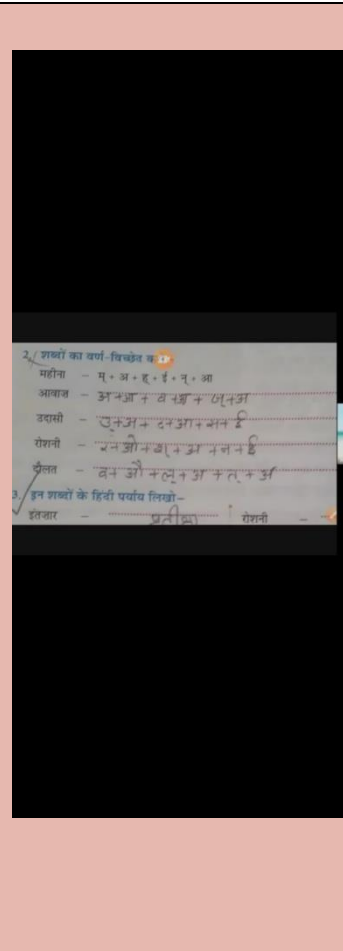 2. शब्दों का वर्ण-विच्छेद क
महीना - म् + अ + ह् + ई + न् + आ
आवाज - अ+आ + व + + ज्+अ
उदासी - उ+अ + द+आ+स+ई
रोशनी - र+ओ+श्+अ+न+ई
दौलत - द+औ+ल्+अ+त्+अ
3. इन शब्दों के हिंदी पर्याय लिखो-
इंतजार - प्रतीक्षा रोशनी -